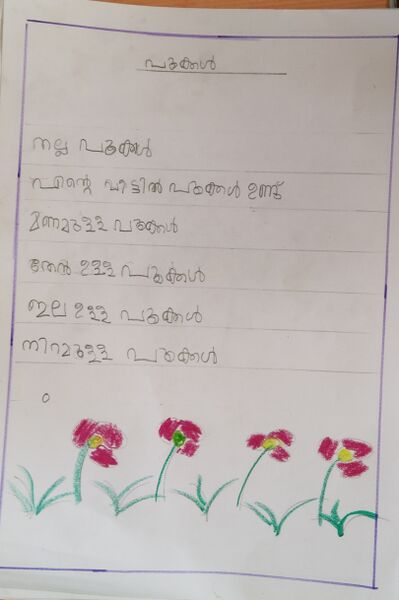 പൂക്കൾ
നല്ല പൂക്കൾ
എന്റെ വീട്ടിൽ പൂക്കൾ ഉണ്ട്
മണമുള്ള പൂക്കൾ
തേൻ ഉള്ള പൂക്കൾ
ഇല ഉള്ള പൂക്കൾ
നിറമുള്ള പൂക്കൾ